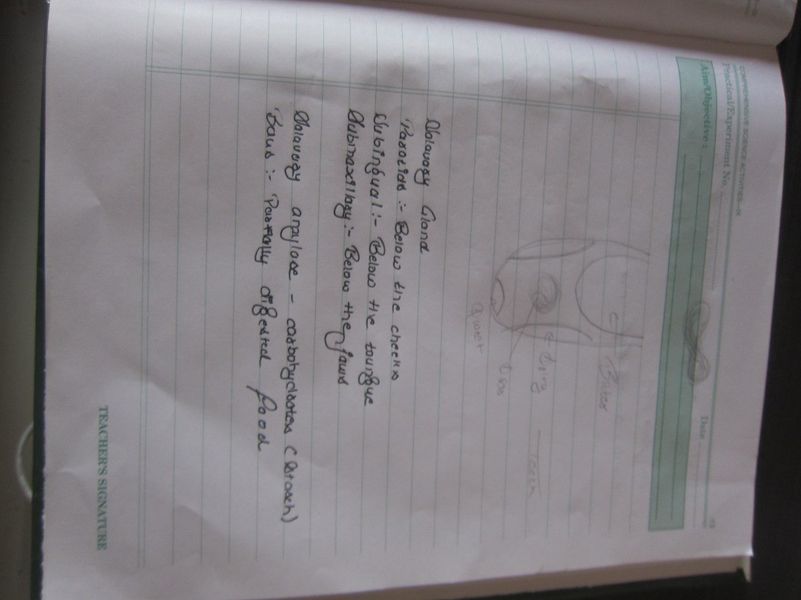 COMPREHENSIVE SCIENCE ACTIVITIES—IX
Practical/Experiment No.
Date
Aim/Objective :
Bitter
Salavary Gland
Parotids :- Below the cheeks
Subingual :- Below the toungue
Submaxillary :- Below the jaws
Salavary amylase - carbohydrates (Starch)
Baus :- Partially digested food
TEACHER'S SIGNATURE